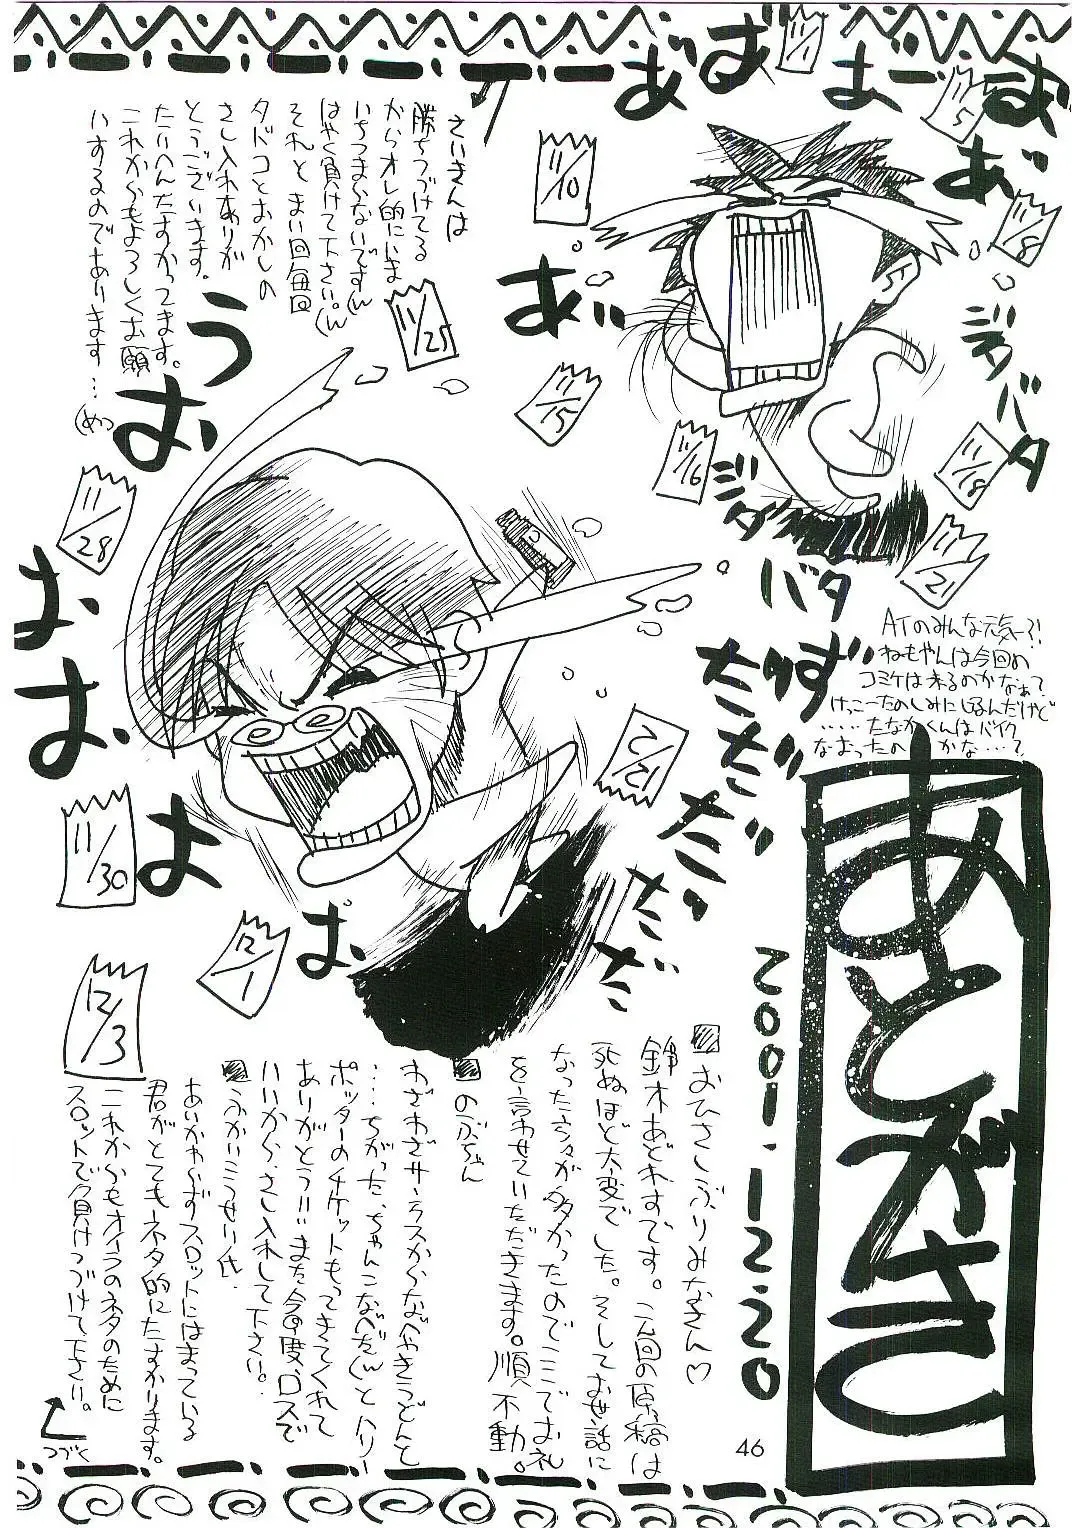 あとがき
2001.12.20
■おひさしぶりみなさん♡
鈴木あどれすです。今回の原稿は
死ぬほど大変でした。そしてお世話に
なった方々が多かったのでここでお礼
を言わせていただきます。順不動。
■のぶちゃん
わざわざサーラスからなべやきうどんと
……ちがった、ちゃんこなべだ(w とハリー
ポッターのチケットもってきてくれて
ありがとういいまた今度、ロスで
いいから、さし入れして下さい。
■ふかいこうせい氏
あいかわらずスロットにはまっている
君がとてもネタ的にたすかります。
これからもオイラのネタのために
スロットで負けつづけて下さい。
つづく
さいきんは
勝ちつづけてる
からオレ的にいま
いちつまらないです(w
はやく負けて下さい。(w
それと まい回毎回
タドコとおかしの
さし入れありが
とうございます。
たいへんたすかってます。
これからもよろしくお願
いするのであります…
(めっ
ATのみんな元気ー?!
ねもやんは今回の
コミケは来るのかなぁて
けっこーたのしみにしてるんだけど
……たなかくんはバイク
なおったの かな…?
あ゛
ジタバタ
ジタバタ
うお
おおよ
ぱお
ただだ
11/1
11/5
11/8
11/10
11/15
11/16
11/18
11/21
11/25
11/28
11/30
12/1
12/2
12/3
46